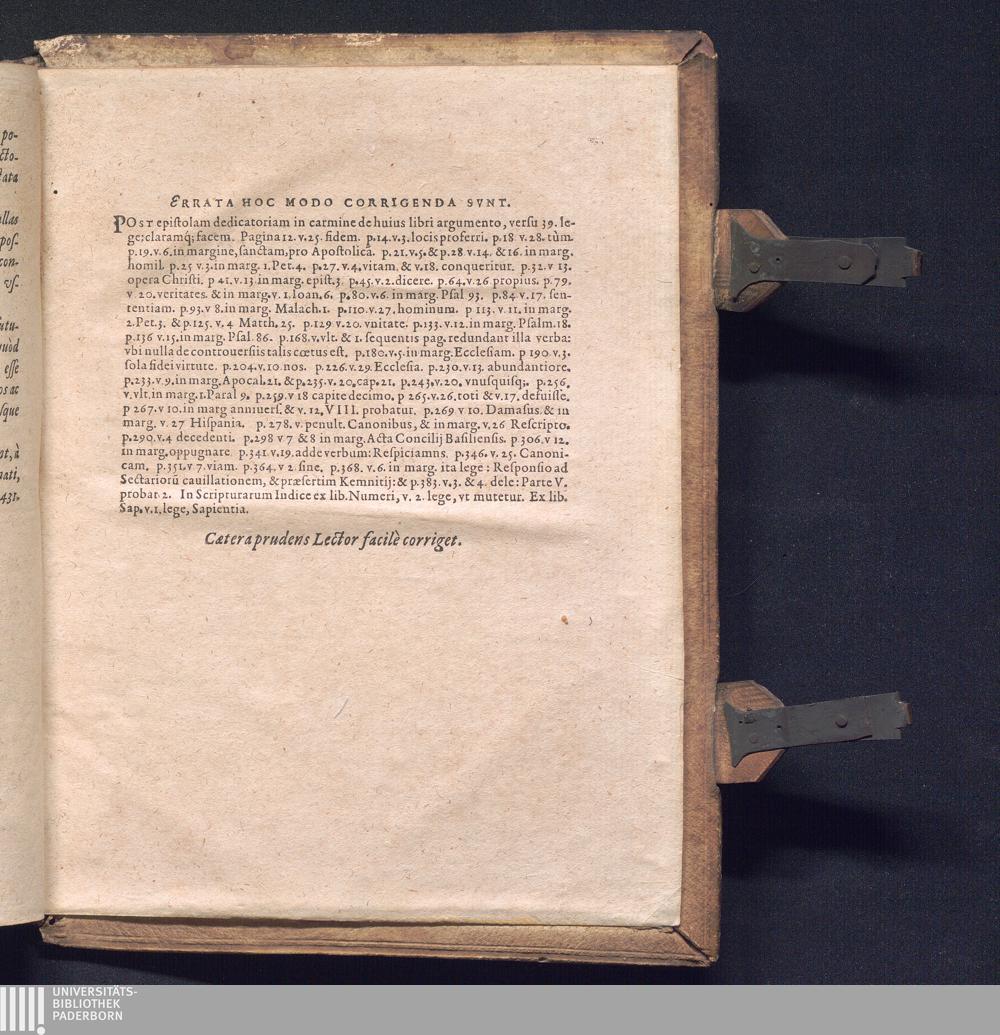 po-
cto-
tata
ullas
pos-
con-
vs-
futu-
quòd
esse
os ac
sque
nt, à
nati,
431.
ERRATA HOC MODO CORRIGENDA SVNT.
POST epistolam dedicatoriam in carmine de huius libri argumento, versu 39. le-
ge: claramq́; facem. Pagina 12. v. 25. fidem. p. 14. v. 3. locis proferri. p. 18 v. 28. tùm.
p. 19. v. 6. in margine, sanctam, pro Apostolicā. p. 21. v. 5. & p. 28 v. 14. & 16. in marg.
homil. p. 25 v. 3. in marg. 1. Pet. 4. p. 27. v. 4. vitam. & v. 18. conqueritur. p. 32. v 13.
opera Christi. p 41. v. 13 in marg. epist. 3. p. 45. v. 2. dicere. p. 64. v. 26 propius. p. 79.
v 20. veritates. & in marg. v. 1. Ioan. 6. p. 80. v. 6. in marg. Psal 93. p. 84 v. 17. sen-
tentiam. p. 93. v 8. in marg. Malach. 1. p. 110. v. 27. hominum. p 113. v. 11. in marg.
2. Pet. 3. & p. 125. v. 4 Matth. 25. p. 129 v. 20. vnitate. p. 133. v. 12. in marg. Psalm. 18.
p. 136 v. 15. in marg. Psal. 86. p. 168. v. vlt. & 1. sequentis pag. redundant illa verba:
vbi nulla de controuersiis talis cœtus est. p. 180. v. 5. in marg. Ecclesiam. p 190 v. 3.
sola fidei virtute. p. 204. v. 10. nos. p. 226. v. 29. Ecclesia. p. 230. v. 13. abundantiore.
p. 233. v 9. in marg. Apocal. 21. & p. 235. v. 20. cap. 21. p. 243. v. 20. vnusquisq;. p. 256.
v. vlt. in marg. 1. Paral 9. p. 259. v 18 capite decimo. p 265. v. 26. toti & v. 17. defuisse.
p 267. v 10. in marg anniuers. & v. 12. VIII. probatur. p. 269 v 10. Damasus. & in
marg. v. 27 Hispania. p. 278. v. penult. Canonibus, & in marg. v. 26 Rescripto.
p. 290. v. 4 decedenti. p. 298 v 7 & 8 in marg. Acta Concilij Basiliensis. p 306. v 12.
in marg. oppugnare. p. 341. v. 19. adde verbum: Respiciamns. p. 346. v. 25. Canoni-
cam. p. 351. v 7. viam. p. 364. v 2. sine. p. 368. v. 6. in marg. ita lege: Responsio ad
Sectariorū cauillationem, & præsertim Kemnitij: & p. 383. v. 3. & 4. dele: Parte V.
probat 2. In Scripturarum Indice ex lib. Numeri, v. 2. lege, vt mutetur. Ex lib.
Sap. v. 1. lege, Sapientia.
Cætera prudens Lector facilè corriget.
UNIVERSITÄTS-
BIBLIOTHEK
PADERBORN